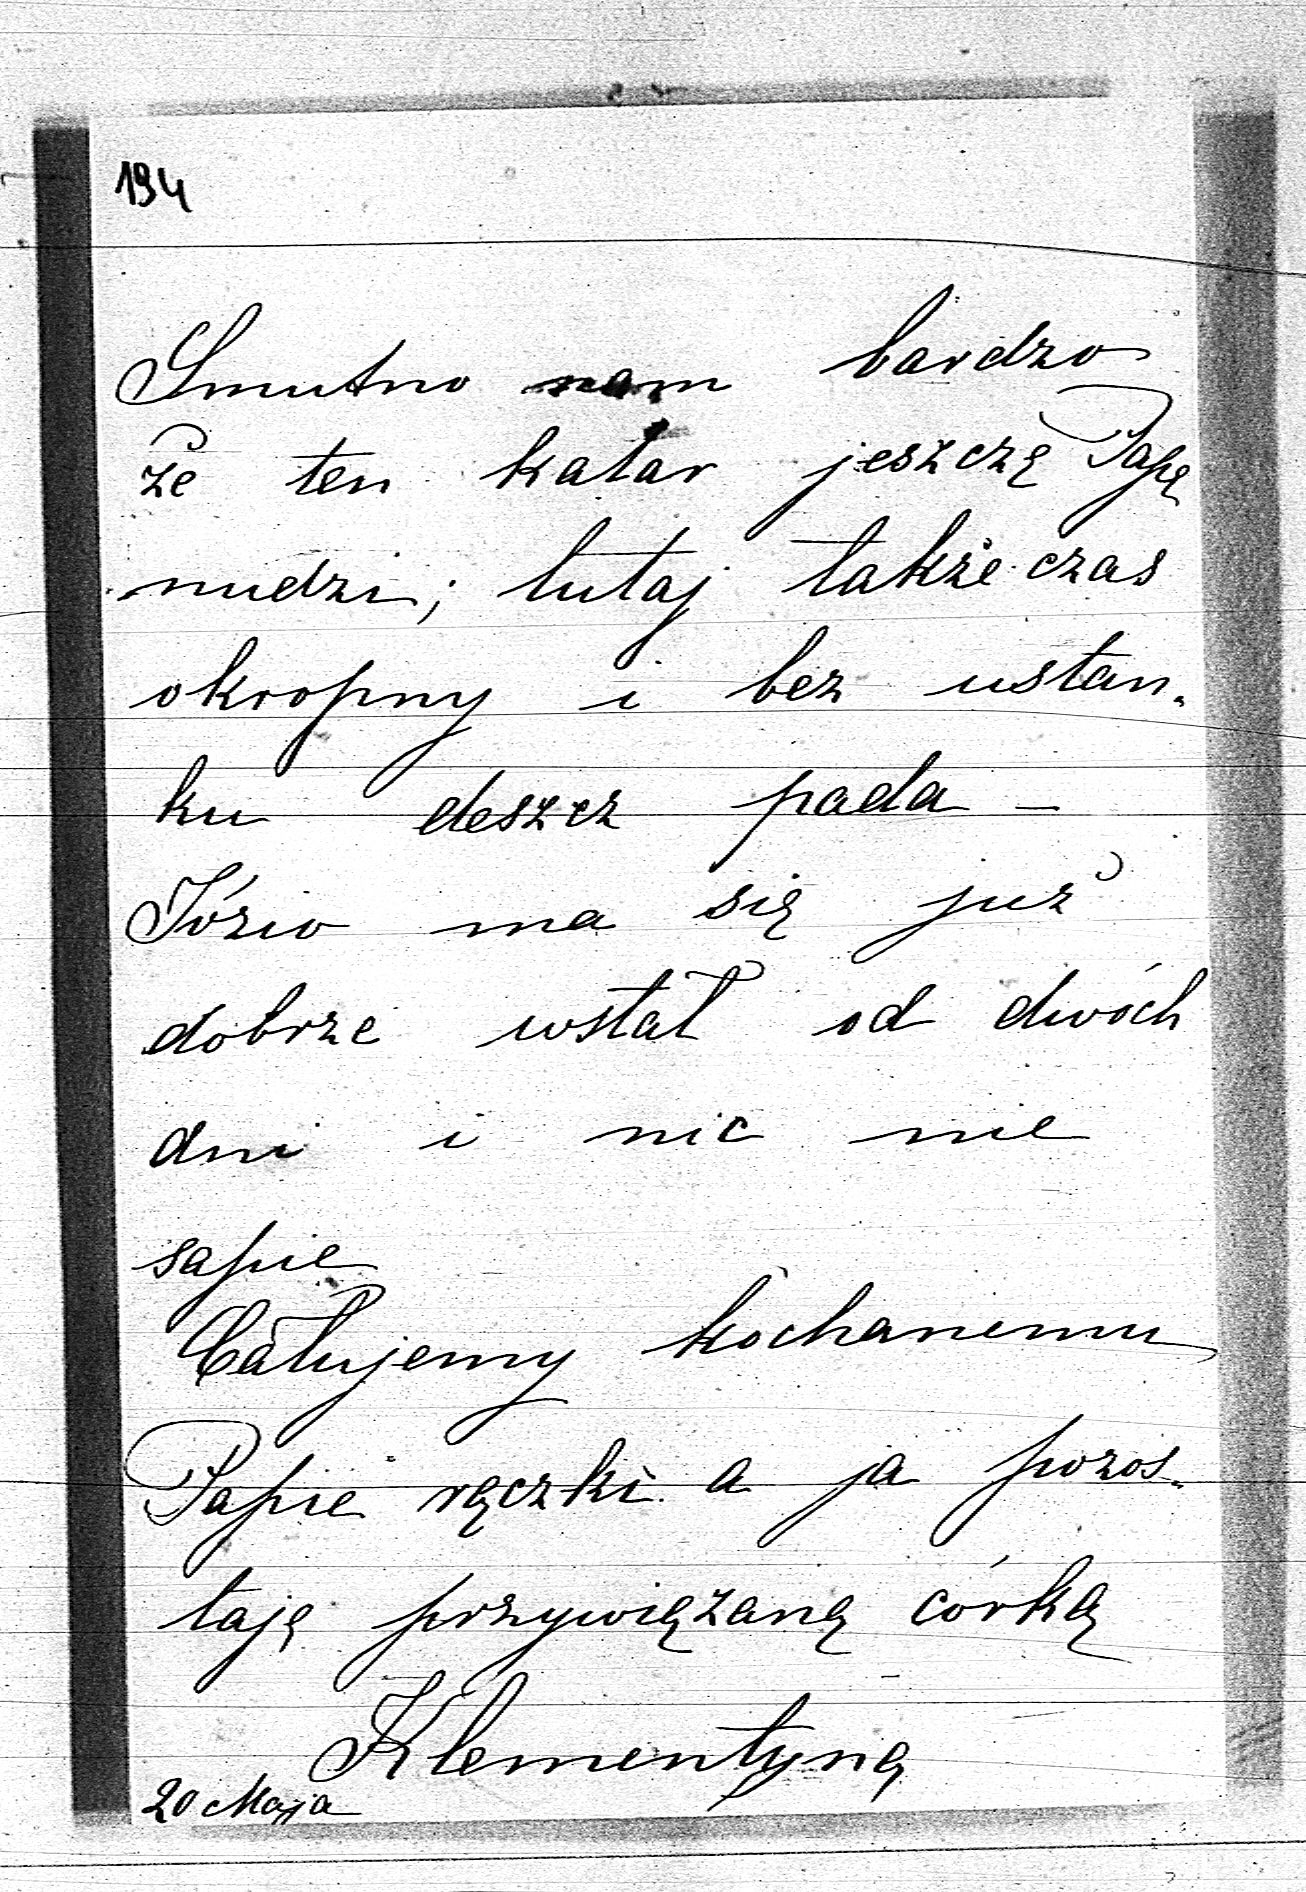 194
Smutno nam bardzo
że ten katar jeszczę Papę
nudzi; tutaj także czas
okropny i bez ustan-
ku deszcz pada –
Józio ma się już
dobrze wstał od dwóch
dni i nic nie
sapie
Całujemy kochanemu
Papie rączki a ja pozos-
taję przywiązaną córką
Klementyną
20 Maja